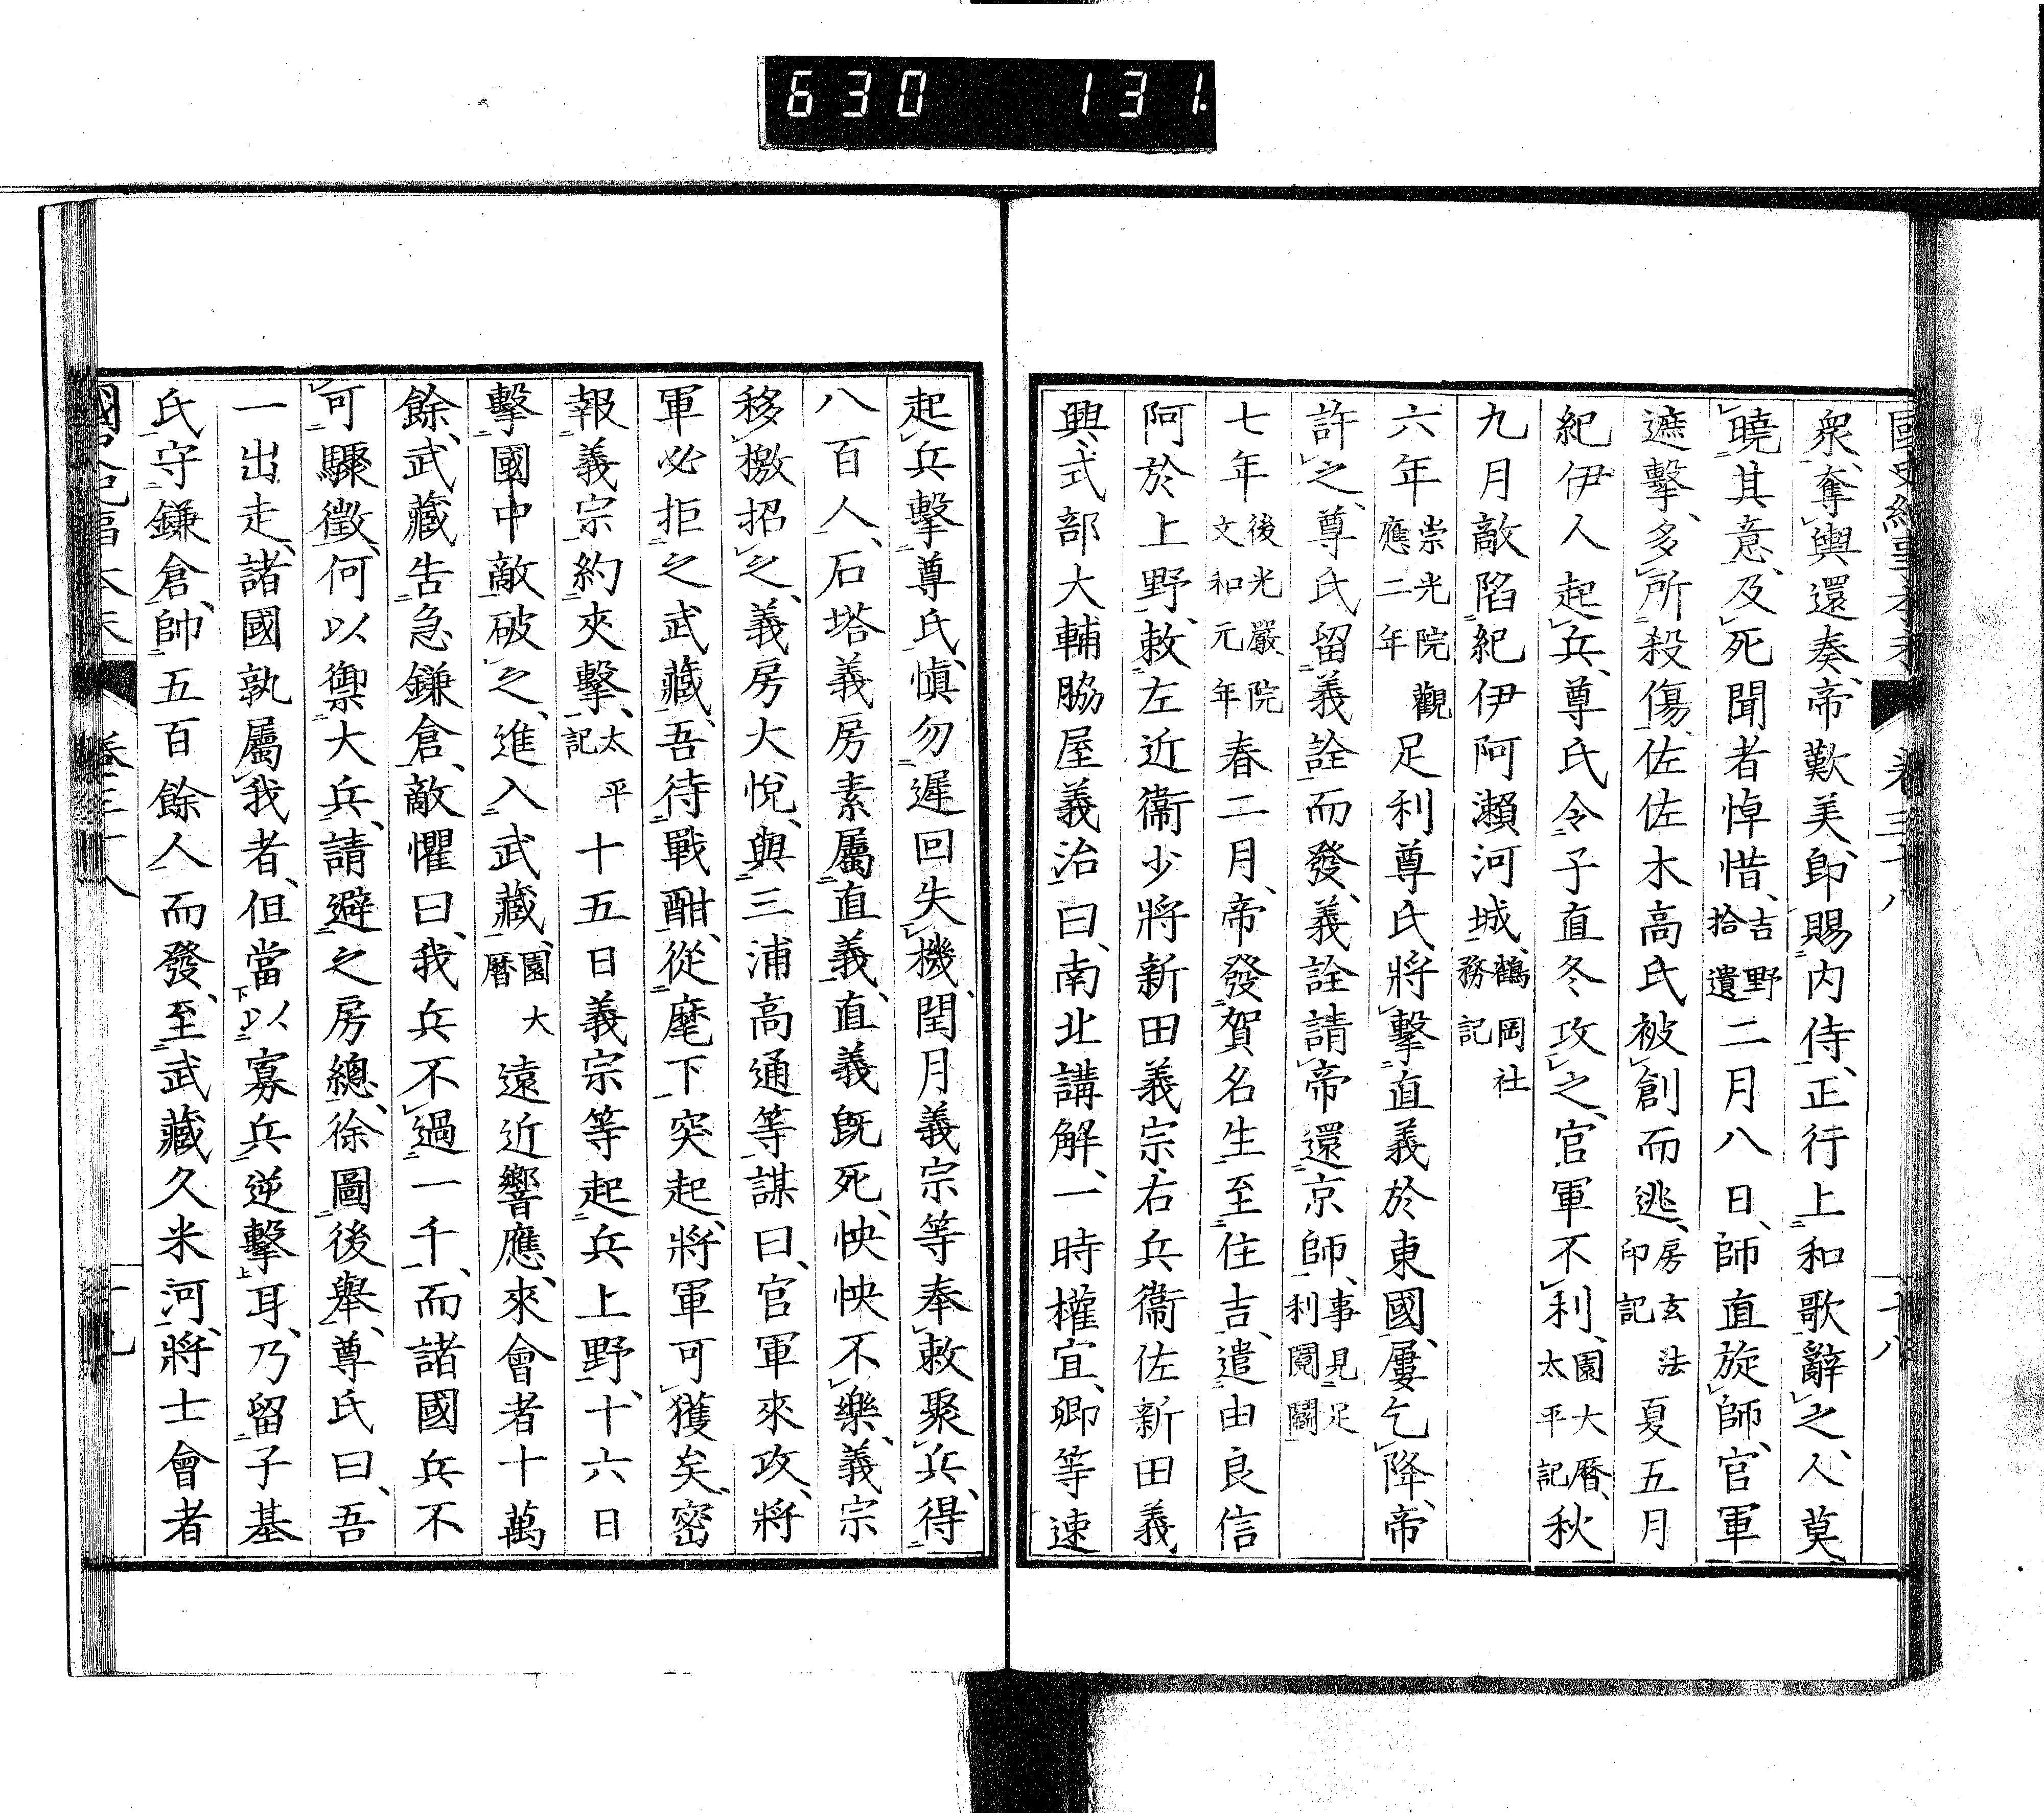 630 131.
衆、奪輿還奏、帝歎美、即賜内侍、正行上和歌辭之、人莫
曉其意、及死聞者悼惜、吉野拾遺二月八日、師直旋師、官軍
遮擊、多所殺傷、佐佐木高氏被創而逃、房玄法印記夏五月
紀伊人起兵、尊氏令子直冬攻之、官軍不利、園大曆、太平記秋
九月敵陷紀伊阿瀨河城、鶴岡社務記
六年崇光院觀應二年足利尊氏將擊直義於東國、屢乞降、帝
許之、尊氏留義詮而發、義詮請帝還京師、事見足利鬩鬭
七年後光嚴院文和元年春二月、帝發賀名生至住吉、遣由良信
阿於上野、敕左近衞少將新田義宗、右兵衞佐新田義
興、式部大輔脇屋義治曰、南北講解、一時權宜、卿等速
起兵擊尊氏、愼勿遲回失機、閏月義宗等奉敕聚兵、得
八百人、石塔義房素屬直義、直義既死、怏怏不樂、義宗
移檄招之、義房大悅、與三浦高通等謀曰、官軍來攻、將
軍必拒之武藏、吾待戰酣、從麾下突起、將軍可獲矣、密
報義宗約夾擊、太平記十五日義宗等起兵上野、十六日
擊國中敵破之、進入武藏、園大曆遠近響應、來會者十萬
餘、武藏告急鎌倉、敵懼曰、我兵不過一千、而諸國兵不
可驟徵、何以禦大兵、請避之房總、徐圖後舉、尊氏曰、吾
一出走、諸國孰屬我者、但當以寡兵逆擊耳、乃留子基
氏守鎌倉、帥五百餘人而發、至武藏久米河、將士會者